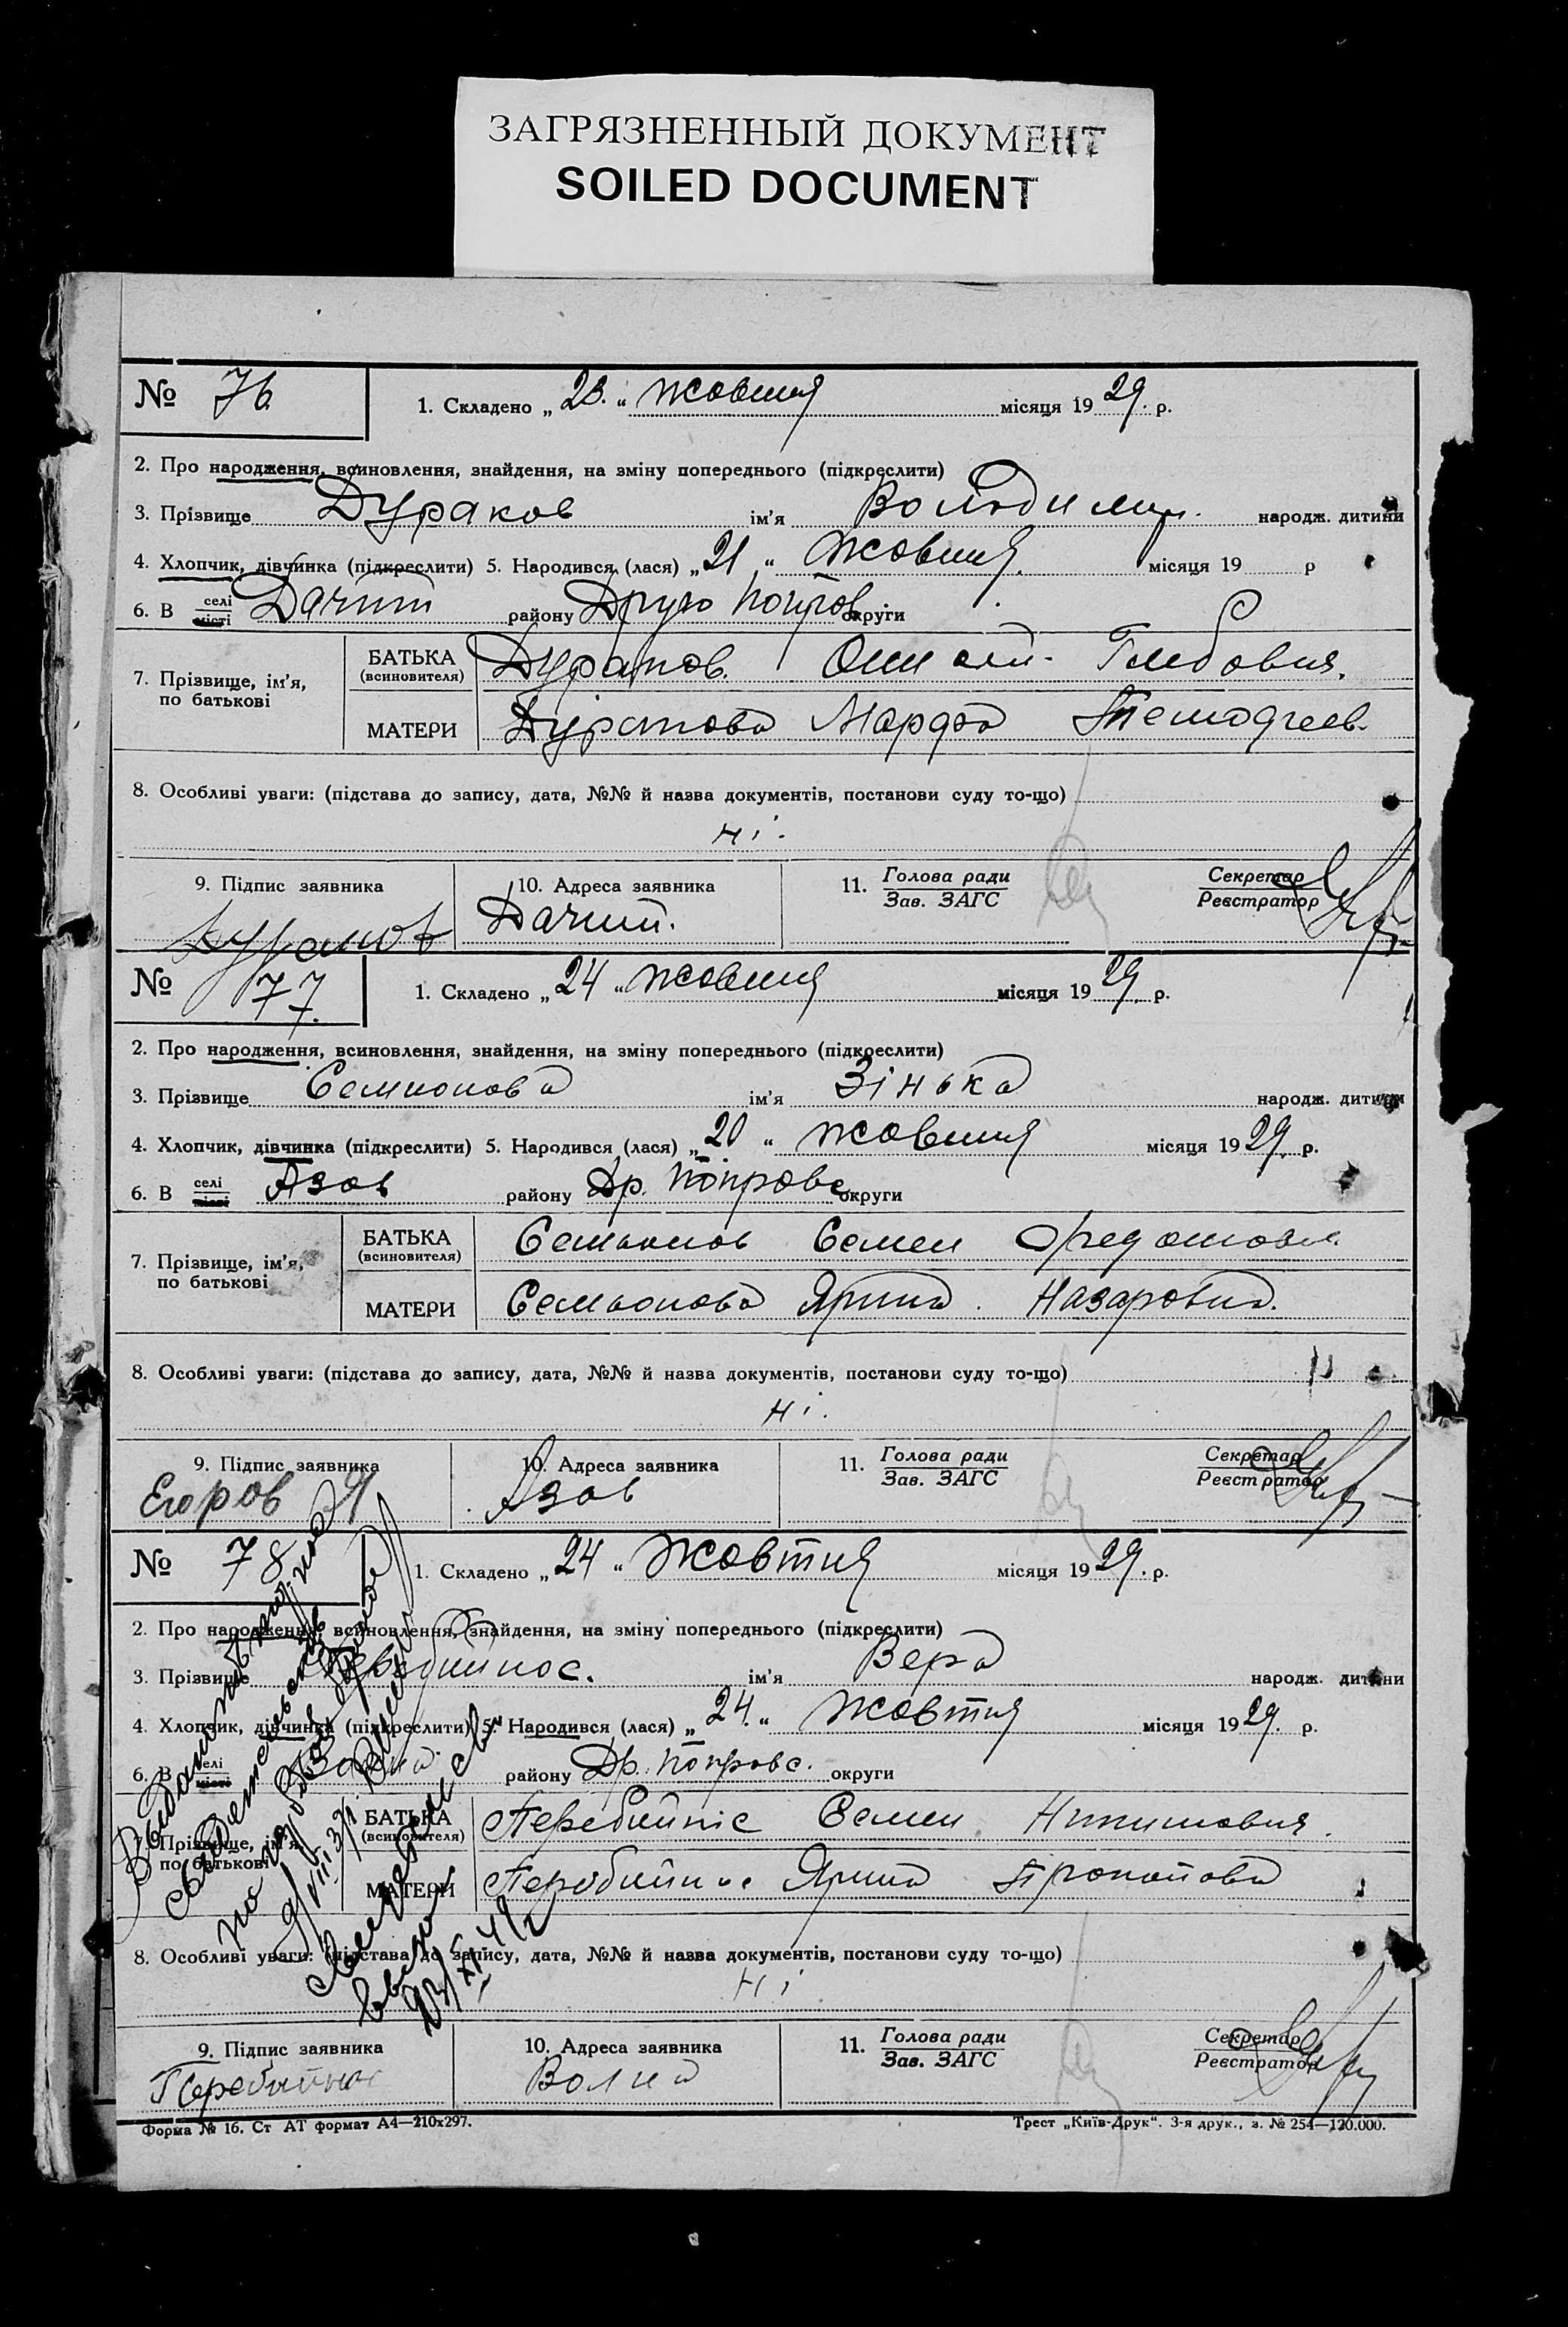 ЗАГРЯЗНЕННЫЙ ДОКУМЕНТ
SOILED DOCUMENT
№ 76 1. Складено „23.“ жовтня місяця 1929. р.
2. Про народження, всиновлення, знайдення, на зміну попереднього (підкреслити)
3. Прізвище Дураков ім'я Володимир. народж. дитини
4. Хлопчик, дівчинка (підкреслити) 5. Народився (лася) „21“ жовтня місяця 19 р
6. В селі місті Дачит району Друго покров. округи
7. Прізвище, ім'я, по батькові
БАТЬКА (всиновителя) Дураков. Глебович.
МАТЕРИ Дуракова Марфа
8. Особливі уваги: (підстава до запису, дата, №№ й назва документів, постанови суду то-що)
ні.
9. Підпис заявника 10. Адреса заявника 11. Голова ради Зав. ЗАГС Секретар Реєстратор
Дураков Дачит.
№ 77. 1. Складено „24“ жовтня місяця 1929. р.
2. Про народження, всиновлення, знайдення, на зміну попереднього (підкреслити)
3. Прізвище Семионова ім'я Зінька народж. дитини
4. Хлопчик, дівчинка (підкреслити) 5. Народився (лася) „20“ жовтня місяця 1929. р.
6. В селі місті Азов району Др. Покровс округи
7. Прізвище, ім'я, по батькові
БАТЬКА (всиновителя) Семионов Семен Федотович
МАТЕРИ Семионова Ярина. Назаровна.
8. Особливі уваги: (підстава до запису, дата, №№ й назва документів, постанови суду то-що)
ні.
9. Підпис заявника 10. Адреса заявника 11. Голова ради Зав. ЗАГС Секретар Реєстратор
Егоров Я Азов
№ 78 1. Складено „24“ жовтня місяця 1929. р.
2. Про народження, всиновлення, знайдення, на зміну попереднього (підкреслити)
3. Прізвище Перебийнос. ім'я Вера народж. дитини
4. Хлопчик, дівчинка (підкреслити) 5. Народився (лася) „24.“ жовтня місяця 1929. р.
6. В селі місті району Др. Покровс. округи
7. Прізвище, ім'я, по батькові
БАТЬКА (всиновителя) Перебийніс Семен Никитович.
МАТЕРИ Перебийнис Ярина Прокопова
8. Особливі уваги: (підстава до запису, дата, №№ й назва документів, постанови суду то-що)
ні
9. Підпис заявника 10. Адреса заявника 11. Голова ради Зав. ЗАГС Секретар Реєстратор
Перебийнос Волна
Форма № 16. Ст АТ формат А4—210х297. Трест „Київ-Друк“. 3-я друк., з. № 254—120.000.